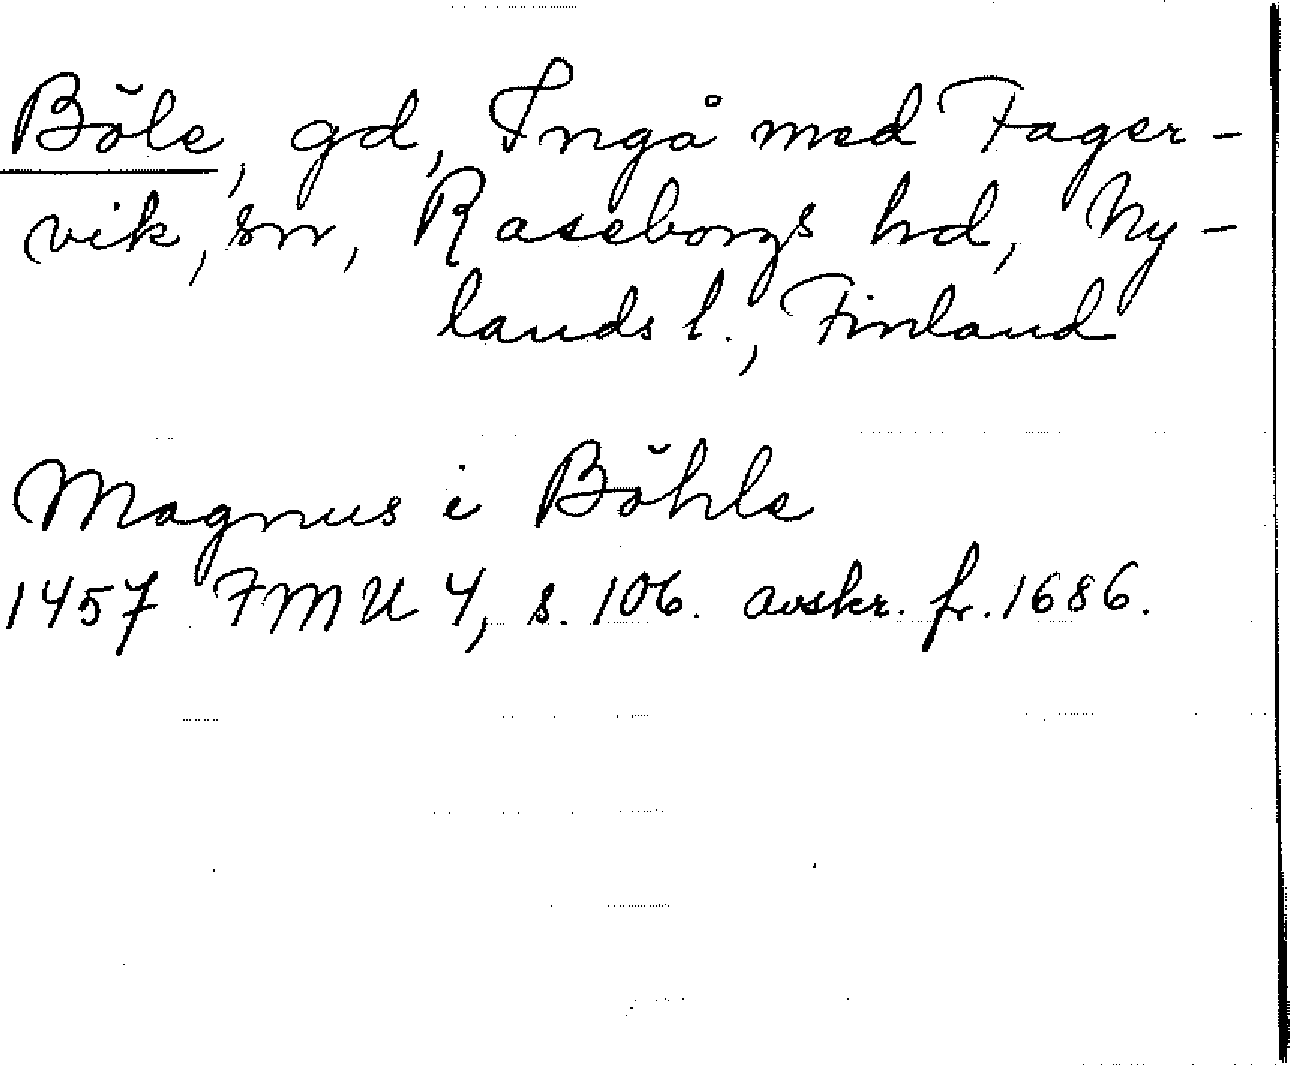 Böle, gd, Ingå med Fager-
vik, sn, Raseborgs hd, Ny-
lands l., Finland
Magnus i Böhle
1457 FMU 4, s. 106. avskr. fr. 1686.